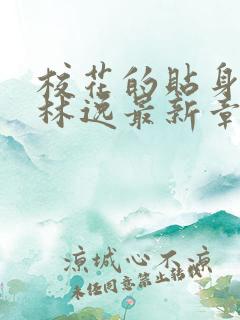 校花的贴身
林逸最新章
凉城心不凉
未经同意禁止转载